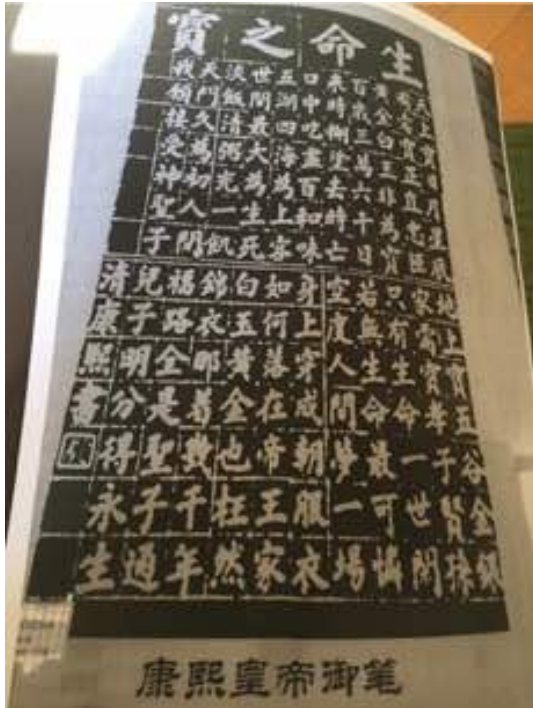 生命之寶
天上寶日月星辰地上寶五谷金銀
國需寶正直忠臣家需寶孝子賢孫
黃金白玉非為寶只有生命一世閑
百歲三萬六千日若無生命最可憐
來時糊塗去時亡空度人間夢一場
口中吃盡百和味身上穿成朝服衣
五湖四海為上客如何落在帝王家
世間最大為生死白玉黃金也枉然
淡飯清粥充一飢錦衣那着幾千年
天門久為初人閉福路全是聖子通
我願接受神聖子兒子明分得永生
清康熙書
康熙皇帝御笔